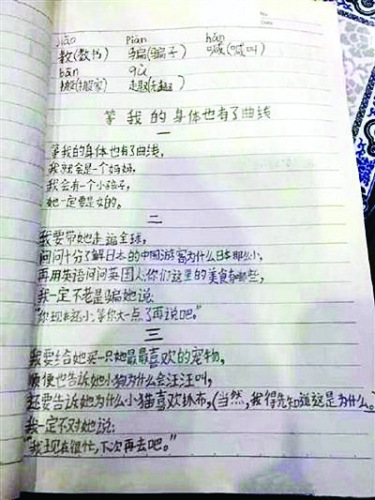 No.
Date
jiāo piàn hǎn
教(教书) 骗(骗子) 喊(喊叫)
bān qù
搬(搬家) 趣(有趣)
等我的身体也有了曲线
一
等我的身体也有了曲线,
我就会是一个妈妈,
我会有一个小孩子,
她一定要是女的。
二
我要带她走遍全球,
问问十分了解日本的中国游客为什么日本那么小,
再用英语问问英国人:你们这里的美食有哪些,
我一定不老是骗她说:
“你现在还小,等你大一点了再说吧。”
三
我要给她买一只她最最喜欢的宠物,
顺便也告诉她小狗为什么会汪汪叫,
还要告诉她为什么小猫喜欢抓布,(当然,我得先知道这是为什么。)
我一定不对她说:
“我现在很忙,下次再去吧。”